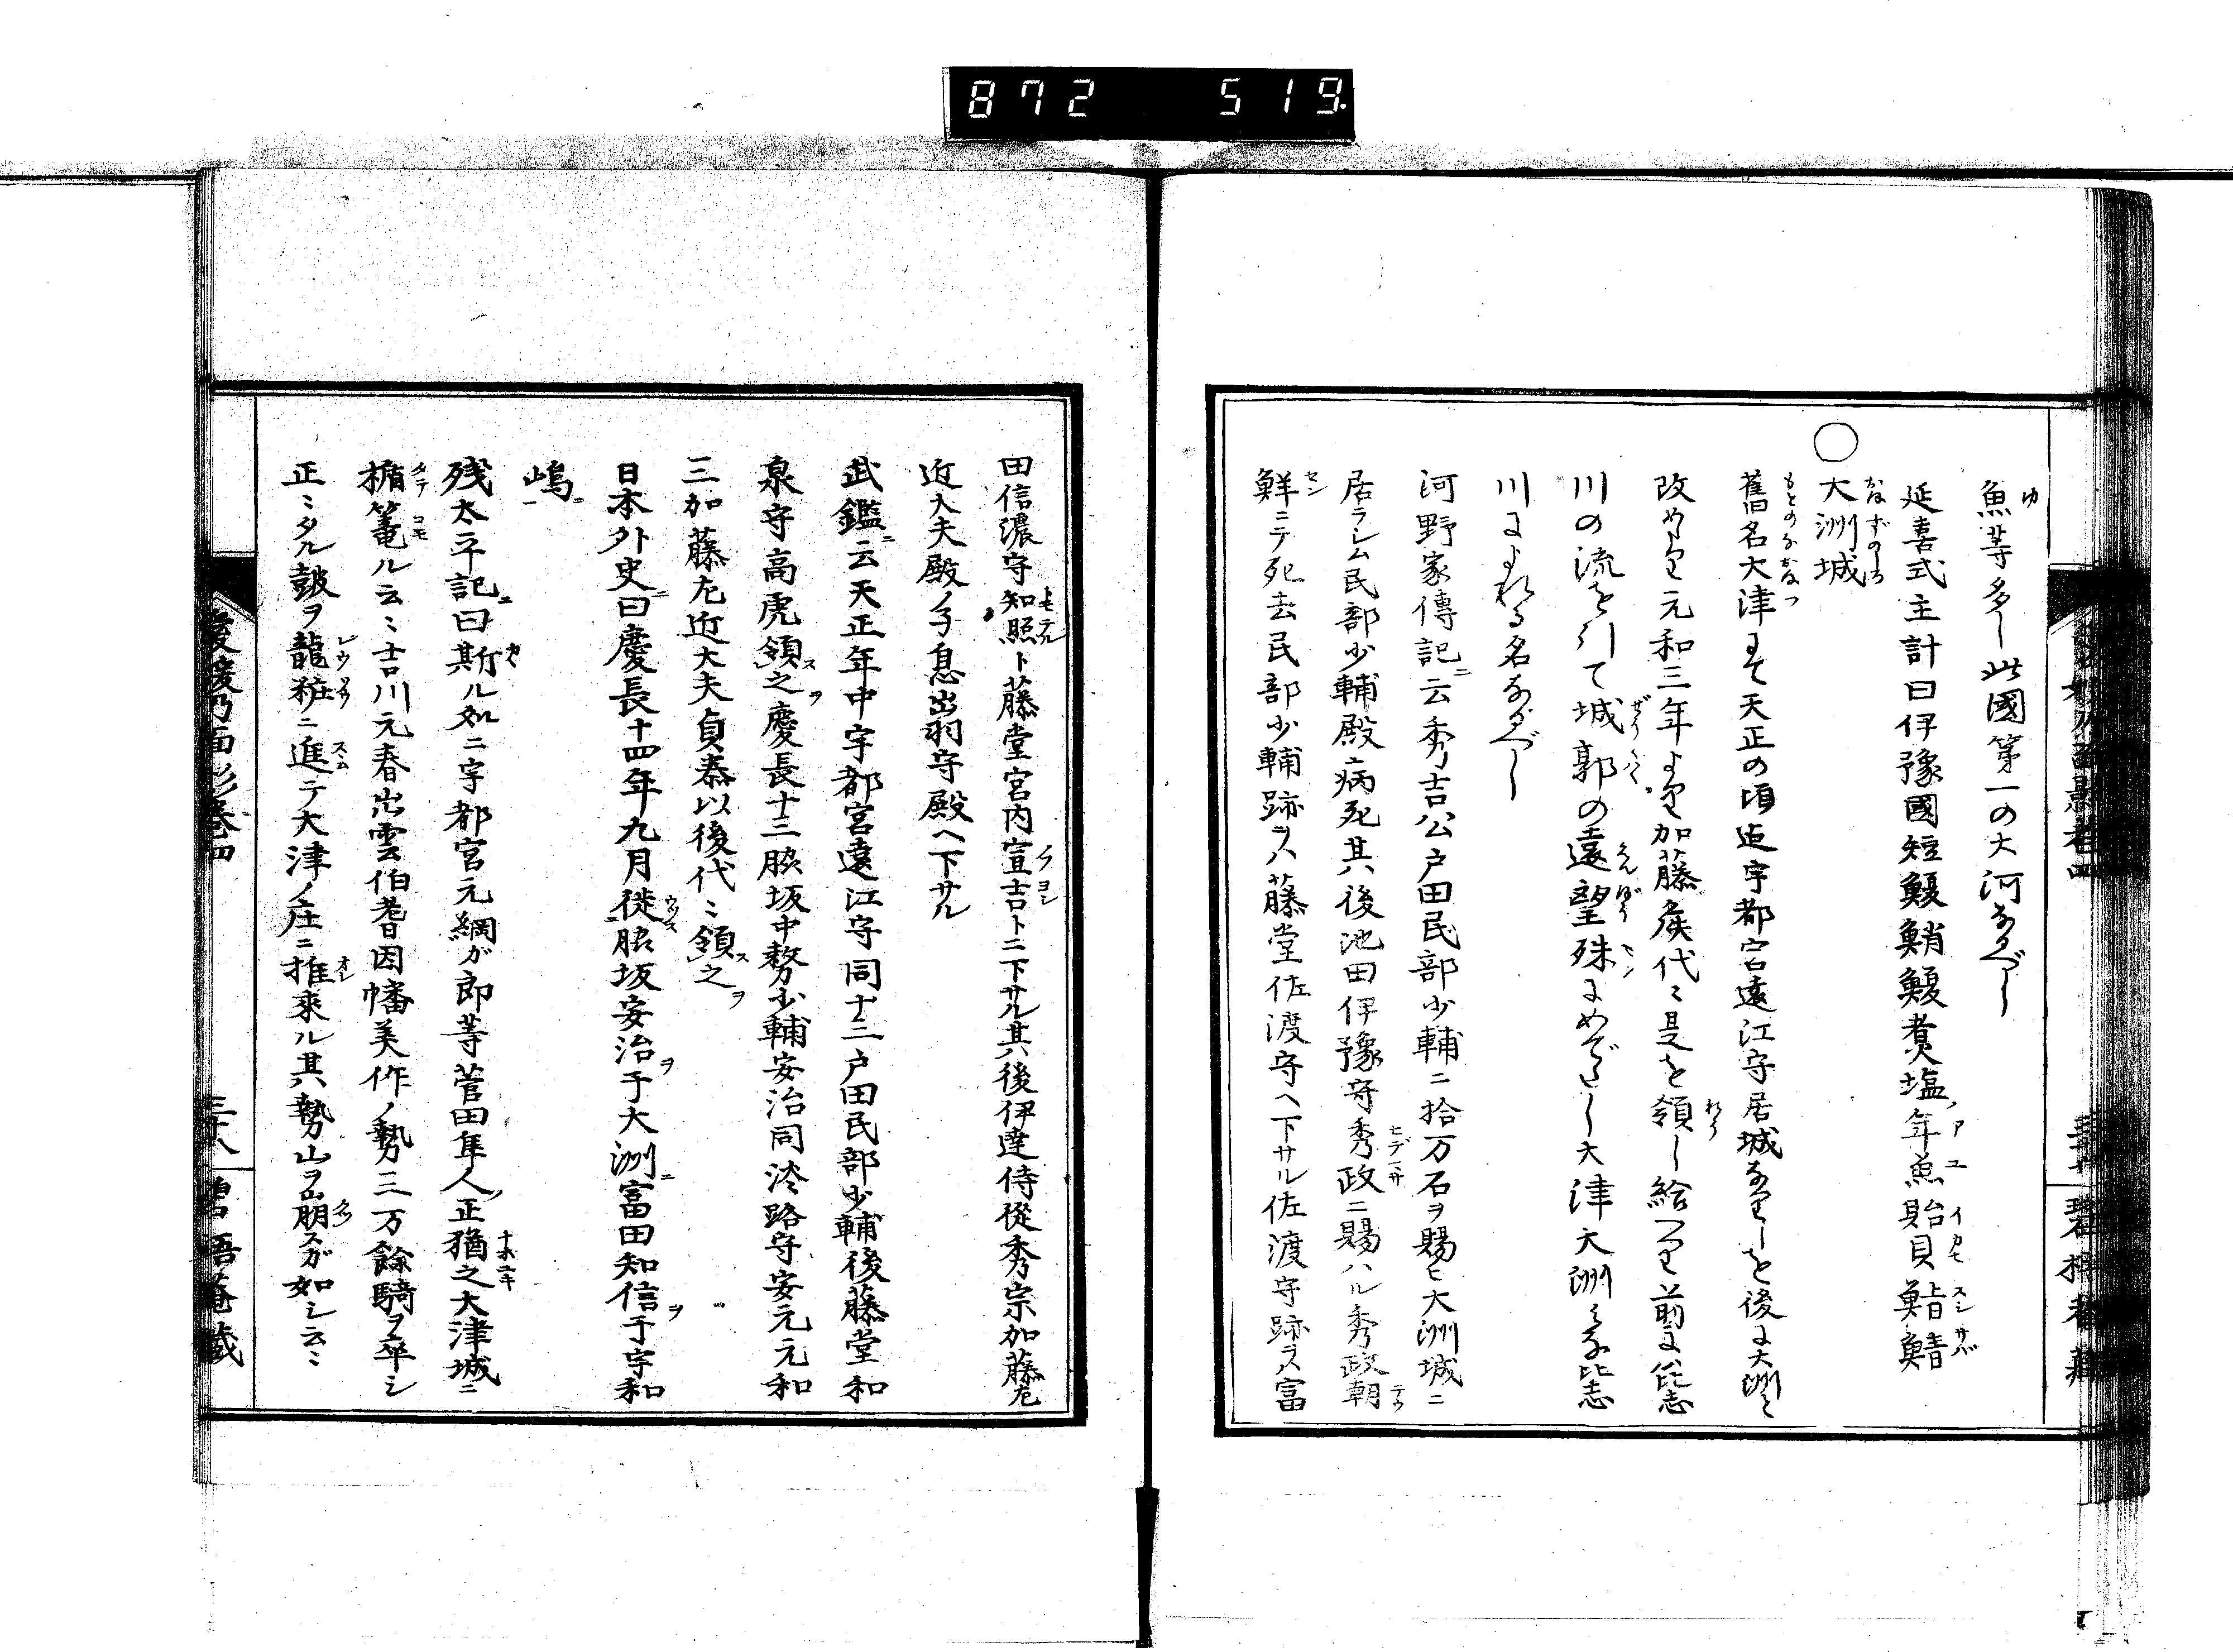 872 519
魚等多し此國第一の大河なるべし
延喜式主計曰伊豫國短鰒鮹鰒煮塩ノ年魚貽貝鮨鯖
○大洲城
舊名大津にて天正の頃迄宇都宮遠江守居城なりしを後に大洲と
改めらる元和三年より加藤矦代〻是を領し給へり前に比志
川の流を引て城郭の遠望殊にめでたし大津大洲ともに比志
川によれる名なるべし
河野家傳記ニ云秀吉公戸田民部少輔ニ拾万石ヲ賜ヒ大洲城ニ
居ラシム民部少輔殿病死其後池田伊豫守秀政ニ賜ハル秀政朝
鮮ニテ死去民部少輔跡ヲハ藤堂佐渡守ヘ下サル佐渡守跡ヲハ富
田信濃守知照ト藤堂宮内宣吉トニ下サル其後伊達侍從秀宗加藤左
近大夫殿ノ子息出羽守殿ヘ下サル
武鑑ニ云天正年中宇都宮遠江守同十三戸田民部少輔後藤堂和
泉守高虎領之慶長十三脇坂中務少輔安治同淡路守安元元和
三加藤左近大夫貞泰以後代〻領之
日本外史ニ曰慶長十四年九月徙脇坂安治ヲ于大洲ニ富田知信ヲ于宇和
嶋ニ
残太平記ニ曰斯ル処ニ宇都宮元綱ガ郎等菅田隼人ノ正猶之大津城ニ
楯篭ル云〻吉川元春出雲伯耆因幡美作ノ勢三万餘騎ヲ卒シ
正〻タル鼓ヲ龍粧ニ進テ大津ノ庄ニ推來ル其勢山ヲ崩スガ如シ云〻